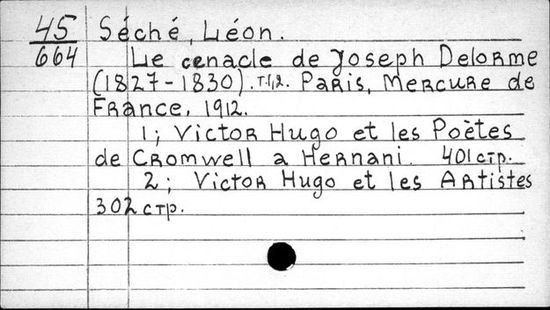 45
664
Séché, Léon.
Le cenacle de Joseph Delorme
(1827-1830). T.1,2. Paris, Mercure de
France, 1912.
1; Victor Hugo et les Poètes
de Cromwell a Hernani. 401 стр.
2; Victor Hugo et les Artistes
302 стр.